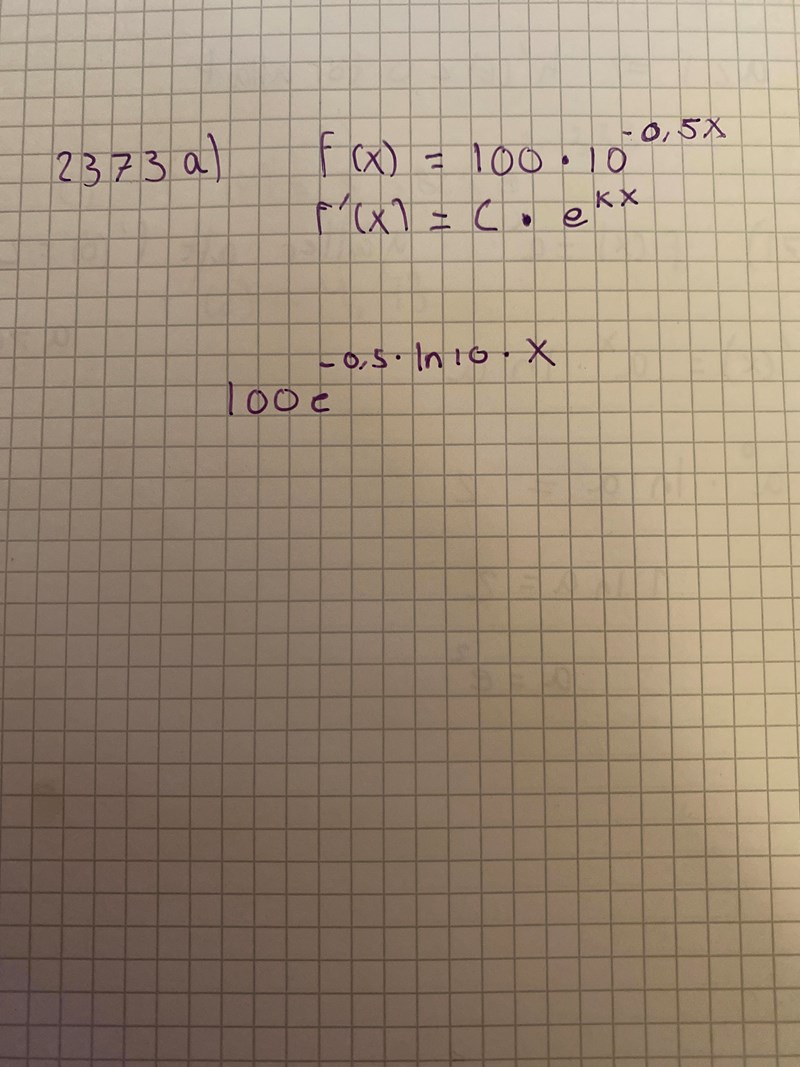 2373 a) f(x) = 100 · 10^-0,5x
f'(x) = C · e^kx
100e^-0,5 · ln10 · x